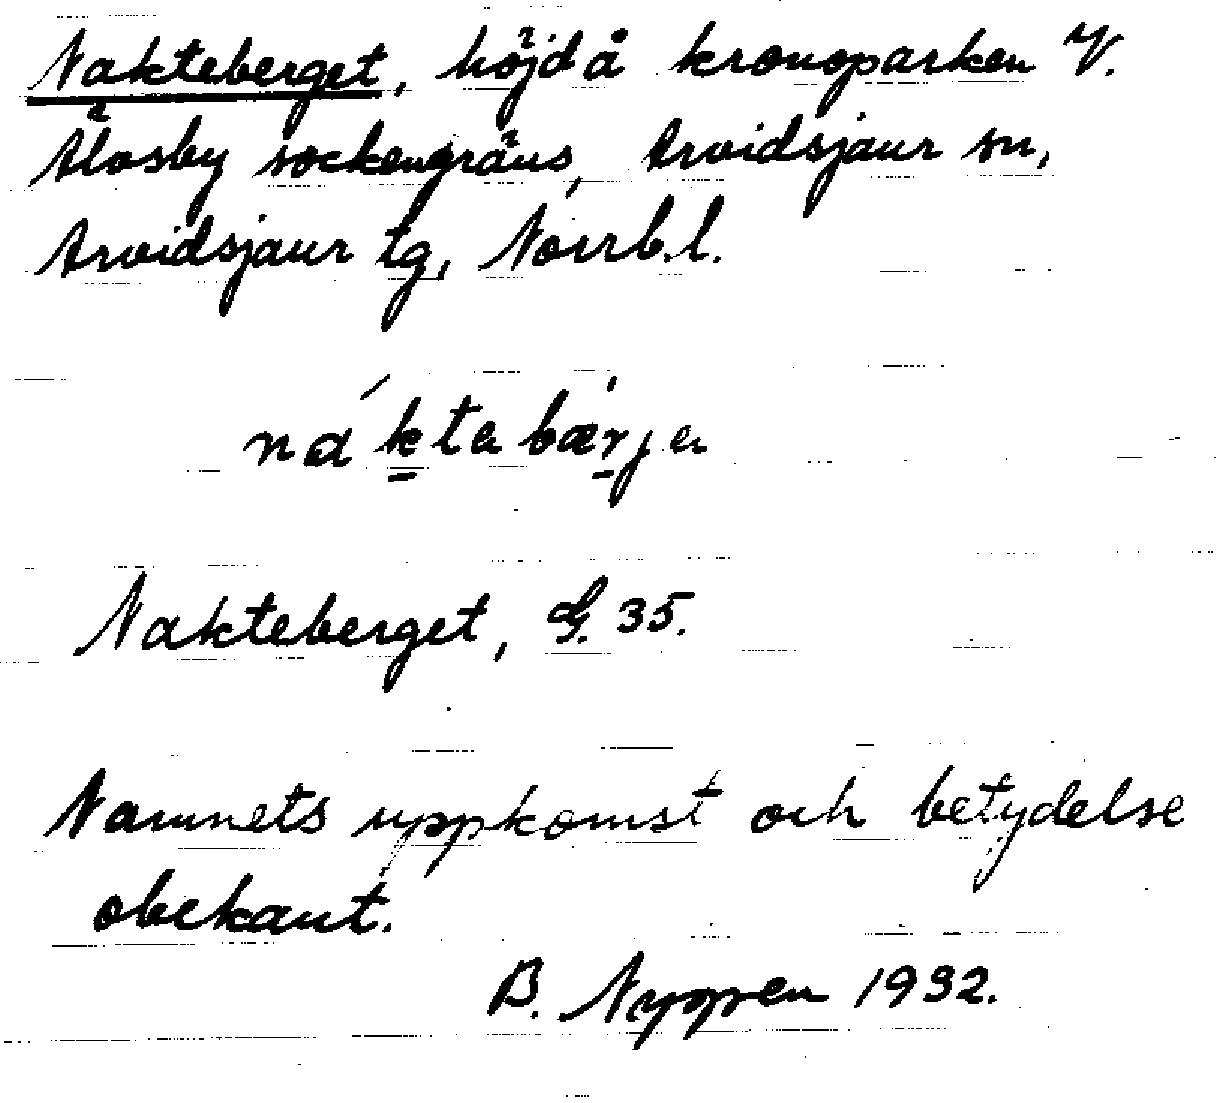 Nakteberget, höjd å kronoparken V.
Älvsby sockengräns, Arvidsjaur sn,
Arvidsjaur tg, Norrb.l.
náktabærja
Nakteberget, G. 35.
Namnets uppkomst och betydelse
obekant.
B. Nyppen 1932.